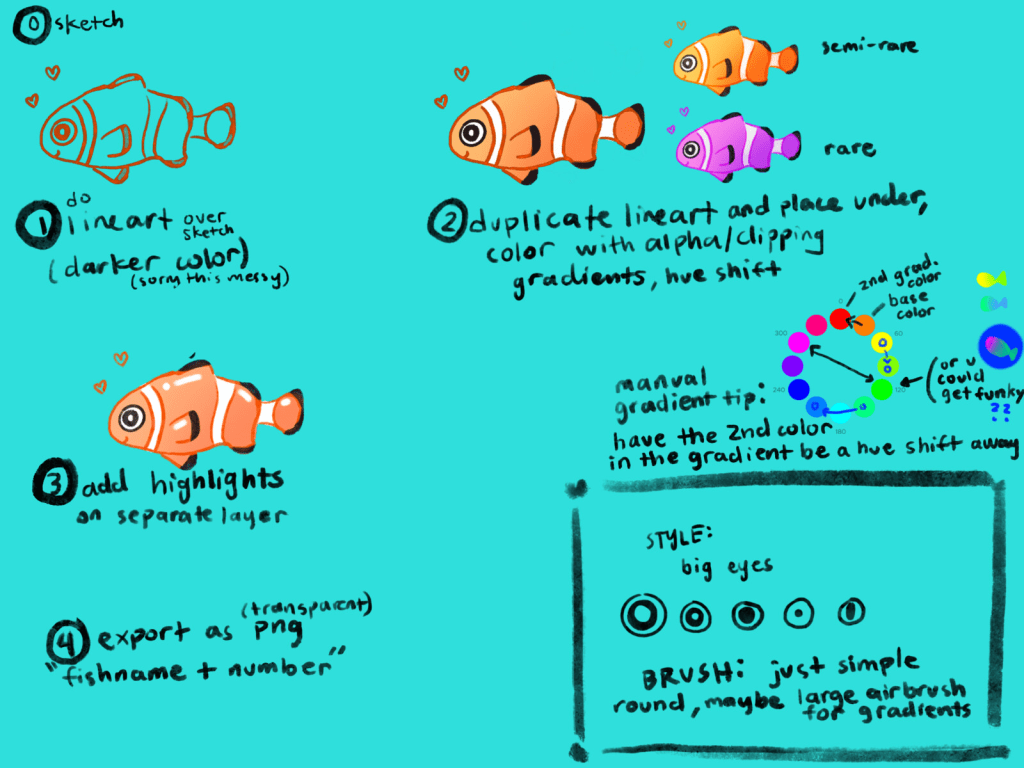 0 sketch
1 do
lineart over sketch
(darker color)
(sorry this messy)
semi-rare
rare
2 duplicate lineart and place under,
color with alpha/clipping
gradients, hue shift
2nd grad. color
base color
0
60
120
180
240
300
manual
gradient tip:
(or u
could
get funky
??
have the 2nd color
in the gradient be a hue shift away
3 add highlights
on separate layer
4 export as (transparent) png
"fishname + number"
STYLE:
big eyes
BRUSH: just simple
round, maybe large airbrush
for gradients